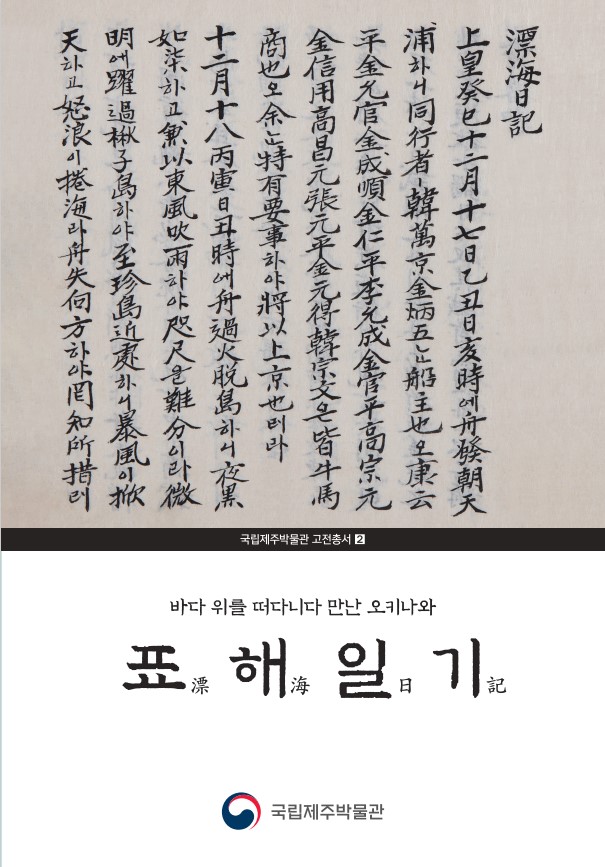 漂海日記
上皇癸巳十二月十七日乙丑日亥時에舟發朝天
浦하니同行者ㅣ韓萬京金炳五는船主也오康云
平金允官金成順金仁平李允成金官平高宗元
金信用高昌元張元平金元得韓宗文은皆牛馬
商也오余는特有要事하야將以上京也러라
十二月十八丙寅日丑時에舟過火脫島하니夜黑
如柒하고兼以東風吹雨하야咫尺을難分이라微
明에躍過楸子島하야至珍島近處하니暴風이掀
天하고怒浪이捲海라舟失向方하야罔知所措러
국립제주박물관 고전총서 2
바다 위를 떠다니다 만난 오키나와
표漂 해海 일日 기記
국립제주박물관